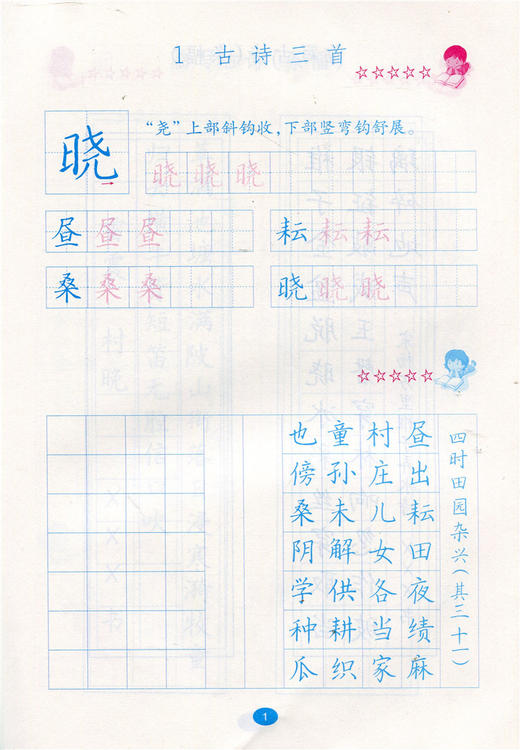 1 古诗三首
“尧”上部斜钩收，下部竖弯钩舒展。
晓 晓 晓 晓
昼 昼 昼 耘 耘 耘
桑 桑 桑 晓 晓 晓
四时田园杂兴（其三十一）
昼出耘田夜绩麻
村庄儿女各当家
童孙未解供耕织
也傍桑阴学种瓜
1